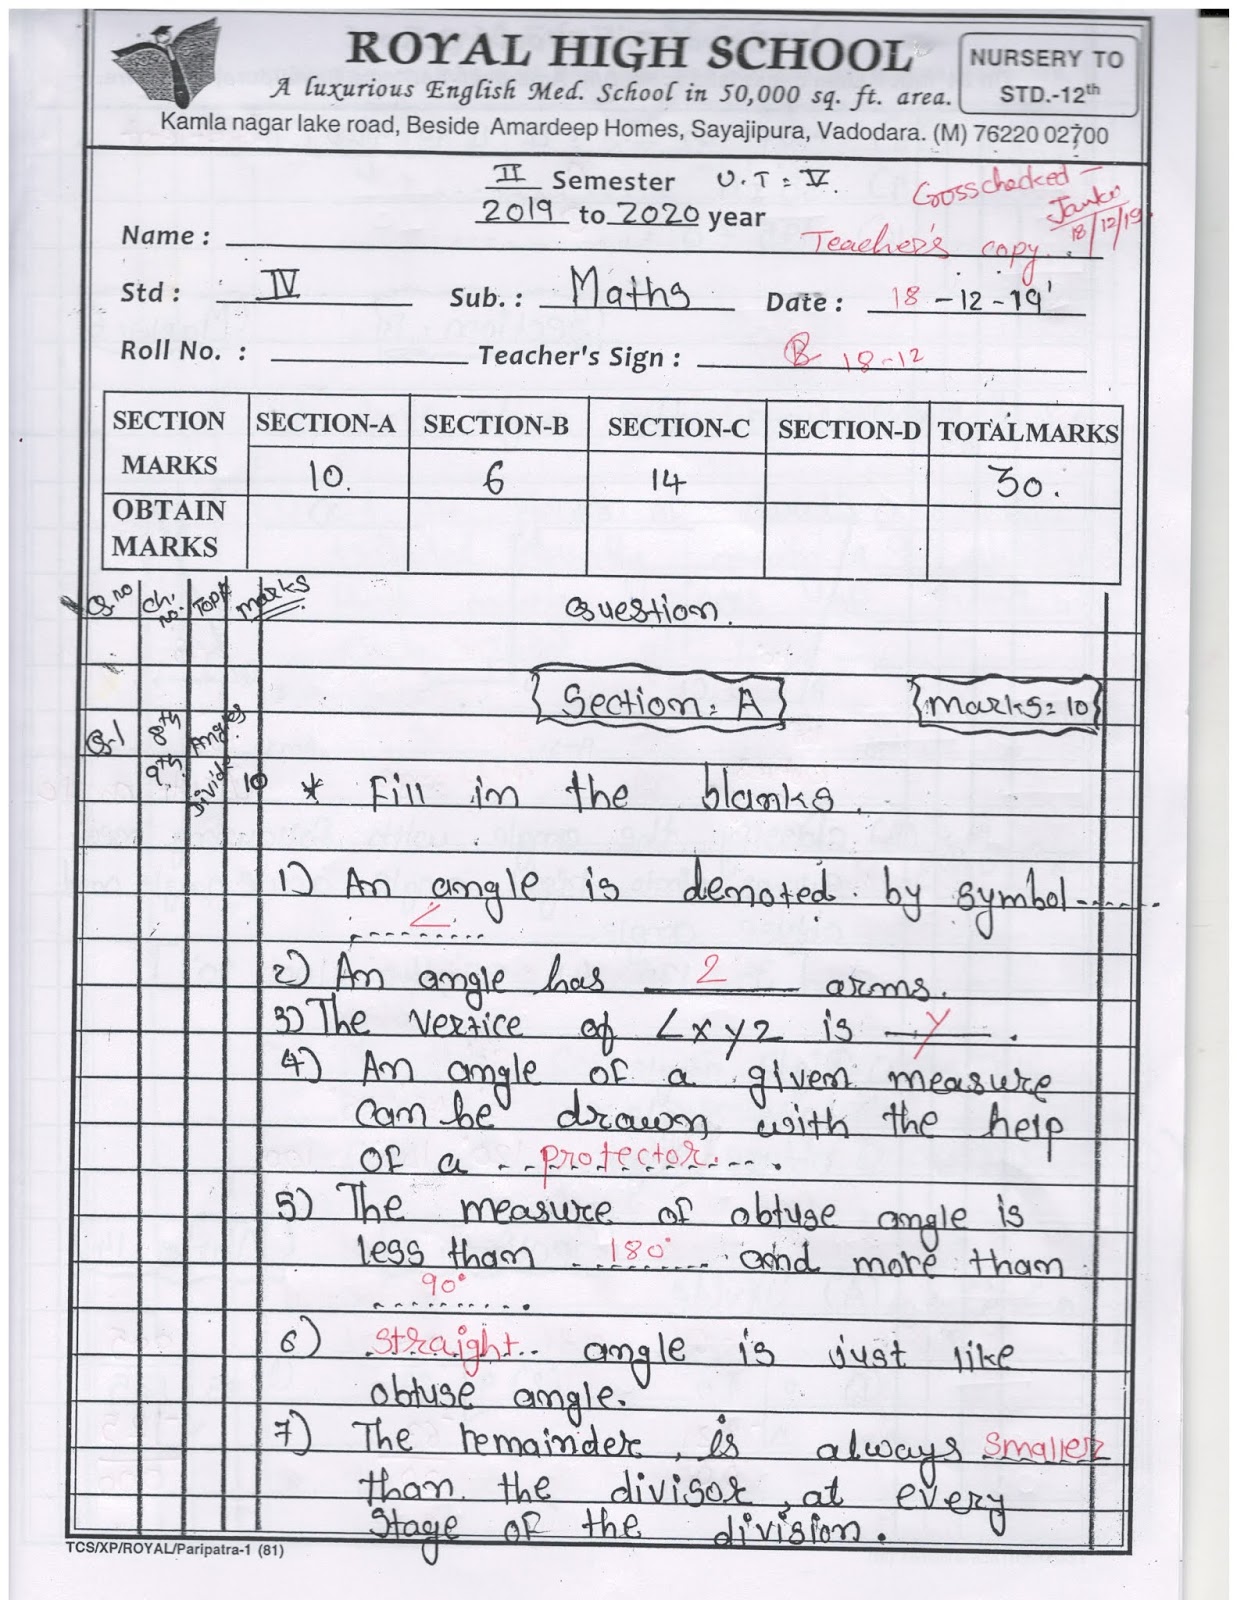 ROYAL HIGH SCHOOL
A luxurious English Med. School in 50,000 sq. ft. area.
NURSERY TO
STD.-12th
Kamla nagar lake road, Beside Amardeep Homes, Sayajipura, Vadodara. (M) 76220 02700
II Semester U.T: V.
Crosschecked
18/12/19
2019 to 2020 year
Name : Teacher's copy.
Std : IV Sub. : Maths Date : 18-12-19
Roll No. : Teacher's Sign : 18-12
SECTION MARKS SECTION-A SECTION-B SECTION-C SECTION-D TOTAL MARKS
10. 6 14 30.
OBTAIN MARKS
Q.no Ch. no. Topi marks Question.
Section: A marks: 10
Q-1 8th 9th. Angles Divide 10 * Fill in the blanks.
1) An angle is denoted by symbol.......
∠
2) An angle has 2 arms.
3) The vertice of ∠xyz is y.
4) An angle of a given measure
can be drawn with the help
of a protector.
5) The measure of obtuse angle is
less than 180° and more than
90°
6) Straight angle is just like
obtuse angle.
7) The remainder is always smaller
than the divisor at every
stage of the division.
TCS/XP/ROYAL/Paripatra-1 (81)